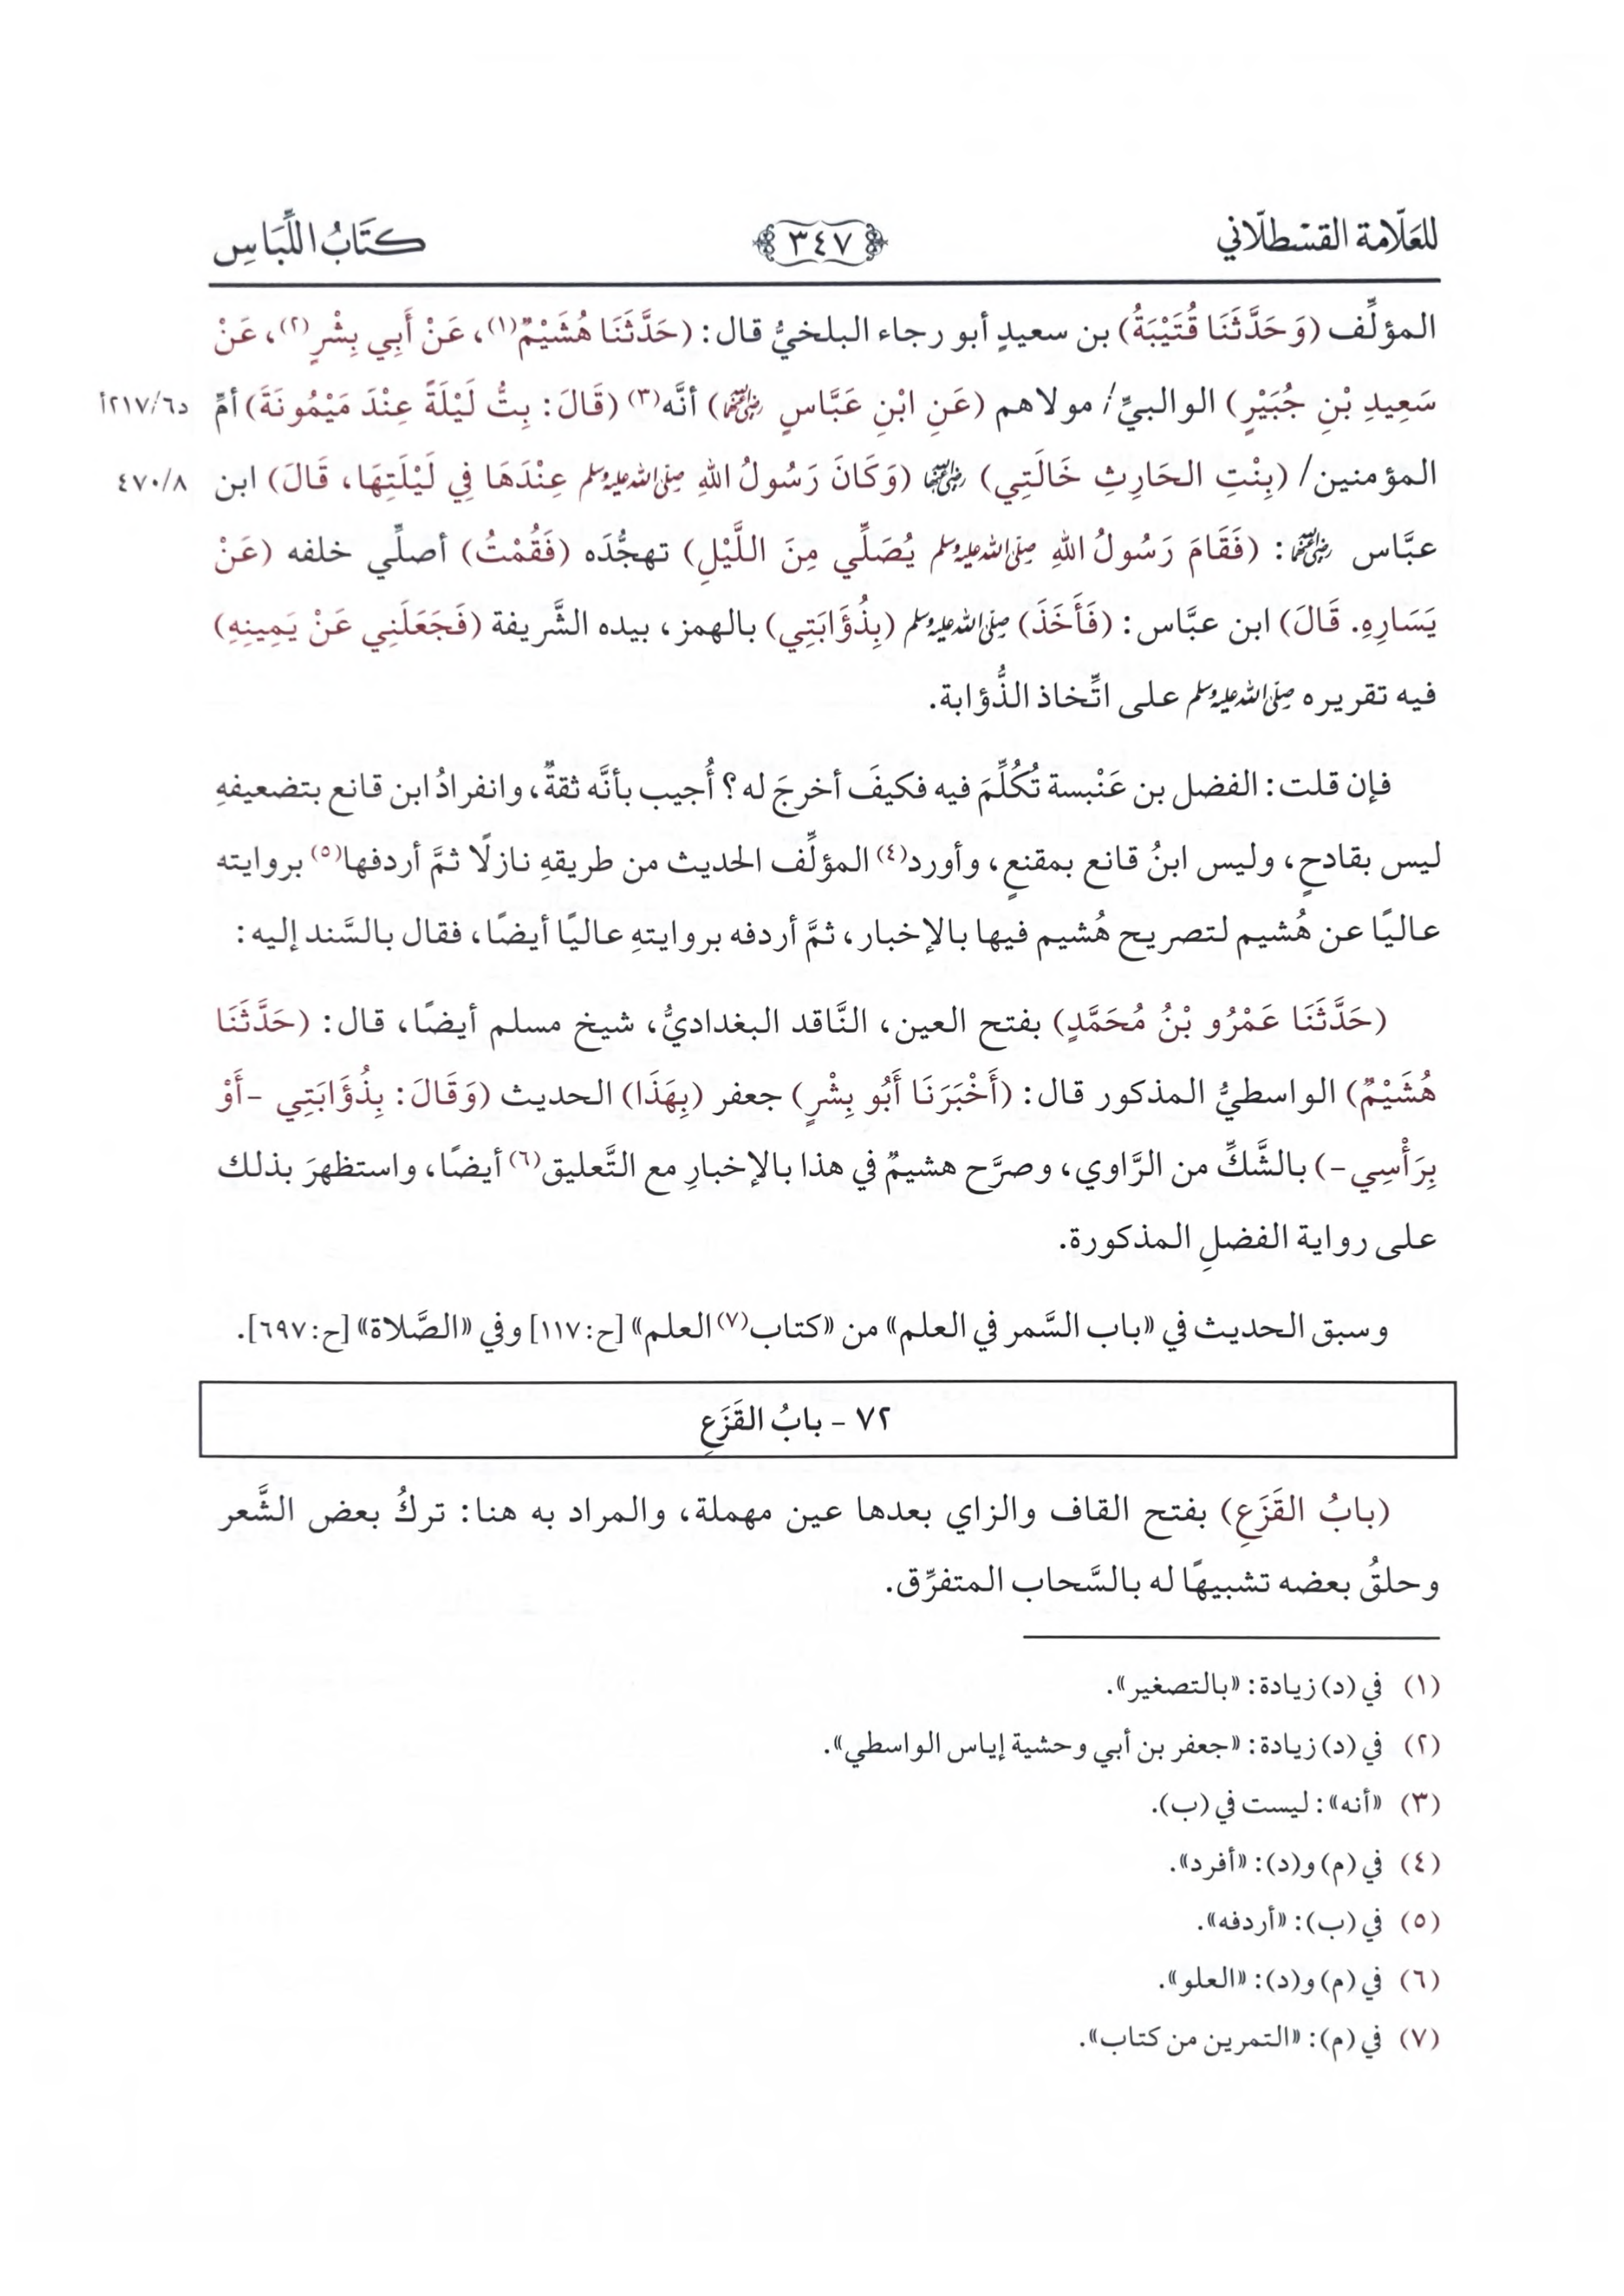 للعَلّامة القسْطلّاني ٣٤٧ كتَابُ اللِّبَاسِ
المؤلِّف (وَحَدَّثَنَا قُتَيْبَةُ) بن سعيدٍ أبو رجاء البلخيُّ قال: (حَدَّثَنَا هُشَيْمٌ(١)، عَنْ أَبِي بِشْرٍ(٢)، عَنْ
سَعِيدِ بْنِ جُبَيْرٍ) الوالبيِّ/ مولاهم (عَنِ ابْنِ عَبَّاسٍ رضي الله عنهما) أنَّه(٣) (قَالَ: بِتُّ لَيْلَةً عِنْدَ مَيْمُونَةَ) أمِّ د٢١٧/٦أ
المؤمنين/ (بِنْتِ الحَارِثِ خَالَتِي) رضي الله عنها (وَكَانَ رَسُولُ اللهِ صلى الله عليه وسلم عِنْدَهَا فِي لَيْلَتِهَا، قَالَ) ابن ٤٧٠/٨
عبَّاس رضي الله عنهما: (فَقَامَ رَسُولُ اللهِ صلى الله عليه وسلم يُصَلِّي مِنَ اللَّيْلِ) تهجُّدَه (فَقُمْتُ) أصلِّي خلفه (عَنْ
يَسَارِهِ. قَالَ) ابن عبَّاس: (فَأَخَذَ) صلى الله عليه وسلم (بِذُؤَابَتِي) بالهمز، بيده الشَّريفة (فَجَعَلَنِي عَنْ يَمِينِهِ)
فيه تقريره صلى الله عليه وسلم على اتِّخاذ الذُّؤابة.
فإن قلت: الفضل بن عَنْبسة تُكُلِّمَ فيه فكيفَ أخرجَ له؟ أُجيب بأنَّه ثقةٌ، وانفرادُ ابن قانع بتضعيفهِ
ليس بقادحٍ، وليس ابنُ قانع بمقنعٍ، وأورد(٤) المؤلِّف الحديث من طريقهِ نازلًا ثمَّ أردفها(٥) بروايته
عاليًا عن هُشيم لتصريح هُشيم فيها بالإخبار، ثمَّ أردفه بروايتهِ عاليًا أيضًا، فقال بالسَّند إليه:
(حَدَّثَنَا عَمْرُو بْنُ مُحَمَّدٍ) بفتح العين، النَّاقد البغداديُّ، شيخ مسلم أيضًا، قال: (حَدَّثَنَا
هُشَيْمٌ) الواسطيُّ المذكور قال: (أَخْبَرَنَا أَبُو بِشْرٍ) جعفر (بِهَذَا) الحديث (وَقَالَ: بِذُؤَابَتِي -أَوْ
بِرَأْسِي-) بالشَّكِّ من الرَّاوي، وصرَّح هشيمٌ في هذا بالإخبارِ مع التَّعليق(٦) أيضًا، واستظهرَ بذلك
على رواية الفضلِ المذكورة.
وسبق الحديث في «باب السَّمر في العلم» من «كتاب(٧) العلم» [ح:١١٧] وفي «الصَّلاة» [ح:٦٩٧].
٧٢ - بابُ القَزَعِ
(بابُ القَزَعِ) بفتح القاف والزاي بعدها عين مهملة، والمراد به هنا: تركُ بعض الشَّعر
وحلقُ بعضه تشبيهًا له بالسَّحاب المتفرِّق.
(١) في (د) زيادة: «بالتصغير».
(٢) في (د) زيادة: «جعفر بن أبي وحشية إياس الواسطي».
(٣) «أنه»: ليست في (ب).
(٤) في (م) و(د): «أفرد».
(٥) في (ب): «أردفه».
(٦) في (م) و(د): «العلو».
(٧) في (م): «التمرين من كتاب».